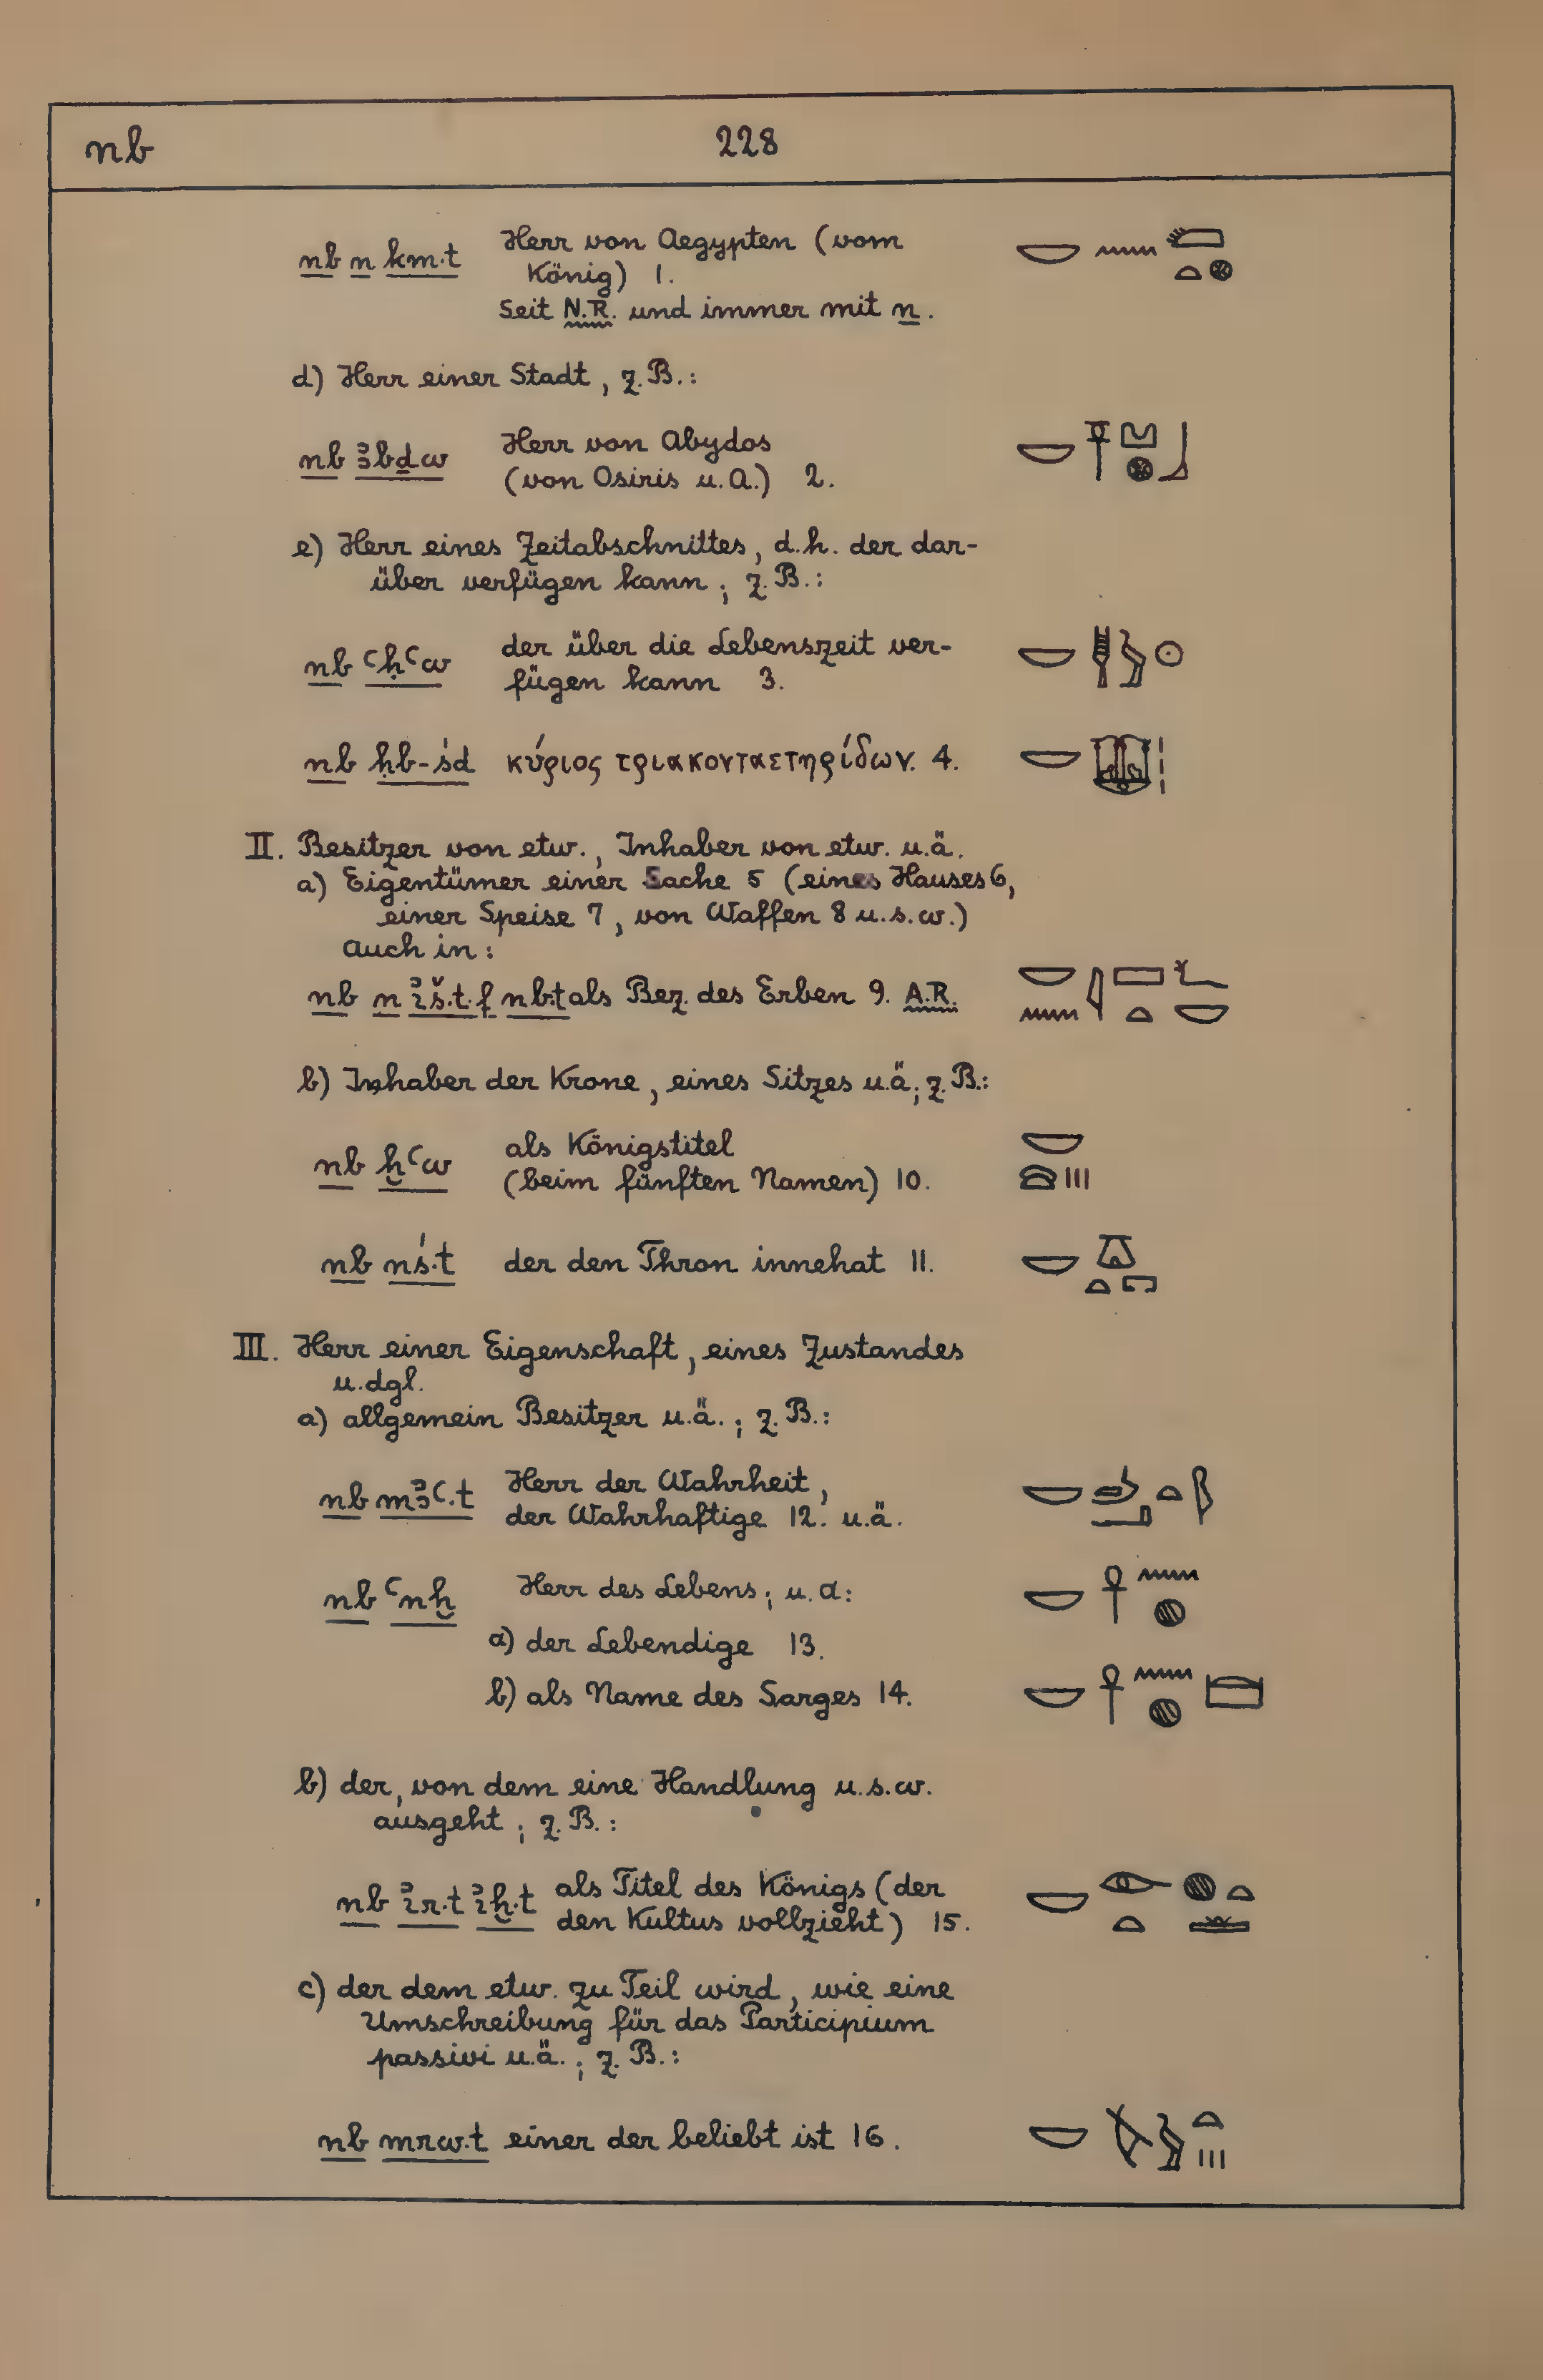 nb 228
nb n km.t Herr von Aegypten (vom
König) 1.
Seit N.R. und immer mit n.
d) Herr einer Stadt, z.B.:
nb ꜣbḏw Herr von Abydos
(von Osiris u.a.) 2.
e) Herr eines Zeitabschnittes, d.h. der dar-
über verfügen kann; z.B.:
nb ꜥḥꜥw der über die Lebenszeit ver-
fügen kann 3.
nb ḥb-śd κύριος τριακονταετηρίδων. 4.
II. Besitzer von etw., Inhaber von etw. u.ä.
a) Eigentümer einer Sache 5 (eines Hauses 6,
einer Speise 7, von Waffen 8 u.s.w.)
auch in:
nb n ꞽš.t.f nb.t als Bez. des Erben 9. A.R.
b) Inhaber der Krone, eines Sitzes u.ä; z.B.:
nb ḫꜥw als Königstitel
(beim fünften Namen) 10.
nb nś.t der den Thron innehat 11.
III. Herr einer Eigenschaft, eines Zustandes
u.dgl.
a) allgemein Besitzer u.ä.; z.B.:
nb mꜣꜥ.t Herr der Wahrheit,
der Wahrhaftige 12. u.ä.
nb ꜥnḫ Herr des Lebens; u.a:
a) der Lebendige 13.
b) als Name des Sarges 14.
b) der, von dem eine Handlung u.s.w.
ausgeht; z.B.:
nb ꞽr.t ꞽḫ.t als Titel des Königs (der
den Kultus vollzieht) 15.
c) der dem etw. zu Teil wird, wie eine
Umschreibung für das Participium
passivi u.ä.; z.B.:
nb mrw.t einer der beliebt ist 16.